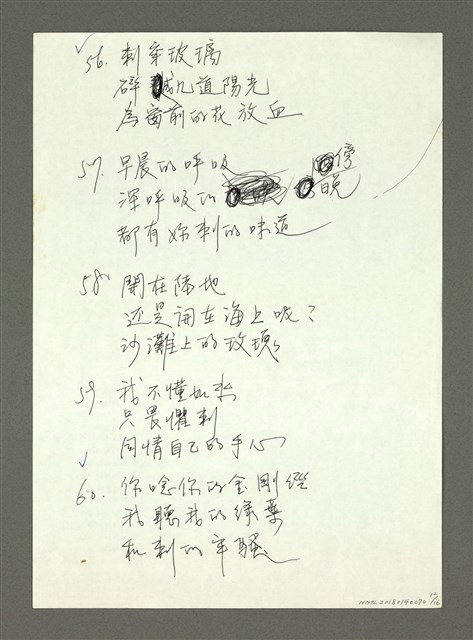 56. 刺穿玻璃
碎成九道陽光
為窗前的花放血
57. 早晨的呼吸
深呼吸的 / 傍晚
都有妳刺的味道
58. 開在陸地
还是開在海上呢?
沙灘上的玫瑰
59. 我不懂如來
只畏懼刺
同情自己的手心
60. 你唸你的金剛經
我聽我的綠葉
和刺的牢騷
NMTL20180140070